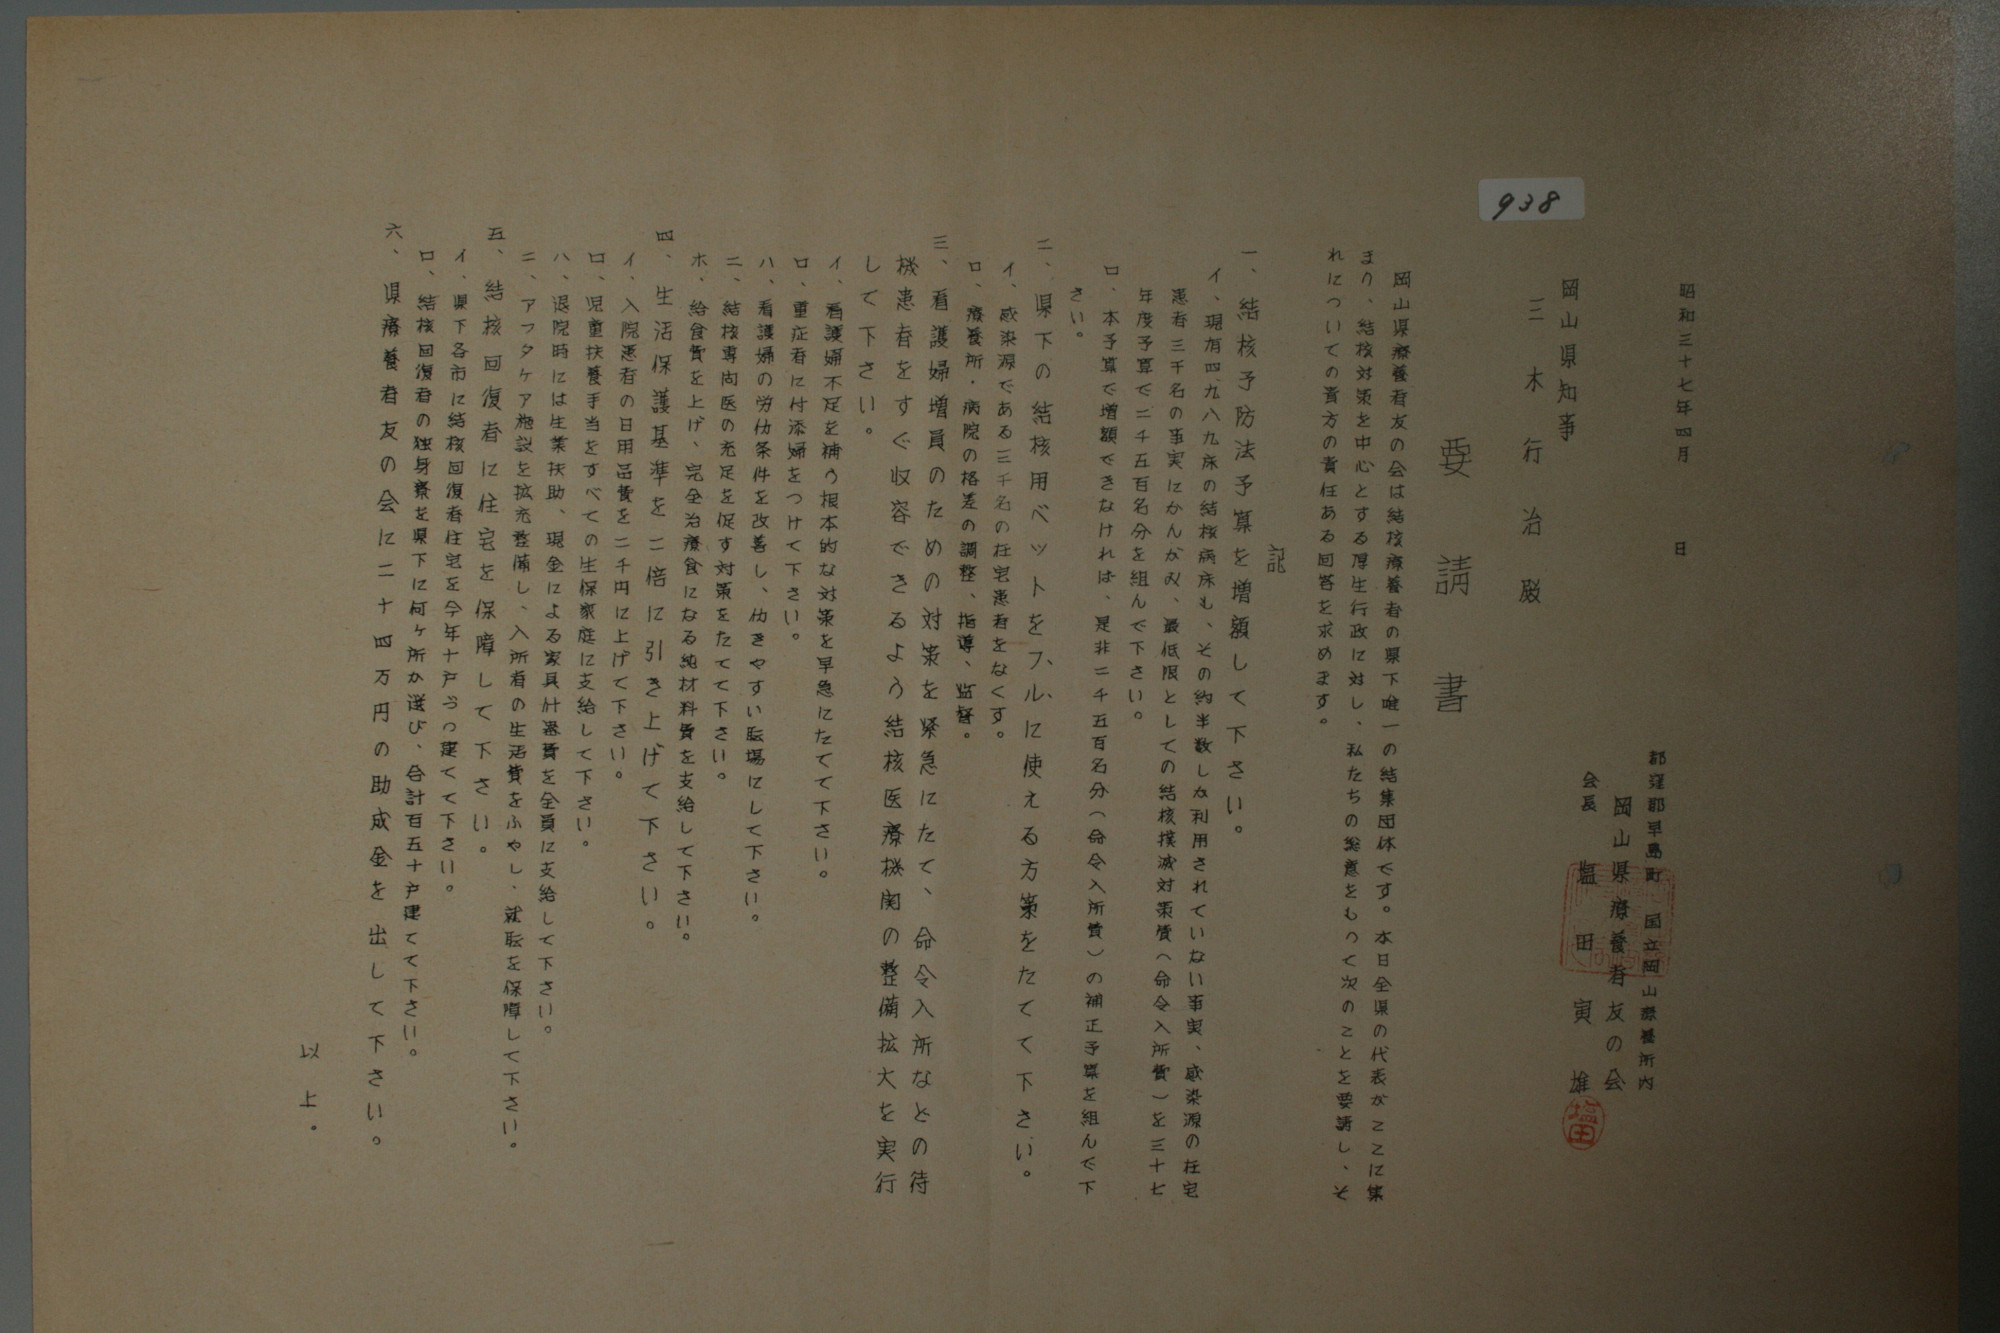 938
昭和三十七年四月　　日
都窪郡早島町　国立岡山療養所内
岡山県療養者友の会
会長　塩田寅雄
塩田
岡山県知事
三木行治殿
要請書
岡山県療養者友の会は結核療養者の県下唯一の結集団体です。本日全県の代表がここに集
まり、結核対策を中心とする厚生行政に対し、私たちの総意をもって次のことを要請し、そ
れについての貴方の責任ある回答を求めます。
記
一、結核予防法予算を増額して下さい。
イ、現有四九八九床の結核病床も、その約半数しか利用されていない事実、感染源の在宅
患者三千名の事実にかんがみ、最低限としての結核撲滅対策費（命令入所費）を三十七
年度予算で二千五百名分を組んで下さい。
ロ、本予算で増額できなければ、是非二千五百名分（命令入所費）の補正予算を組んで下
さい。
二、県下の結核用ベットをフルに使える方策をたてて下さい。
イ、感染源である三千名の在宅患者をなくす。
ロ、療養所・病院の格差の調整、指導、監督。
三、看護婦増員のための対策を緊急にたて、命令入所などの待
機患者をすぐ収容できるよう結核医療機関の整備拡大を実行
して下さい。
イ、看護婦不足を補う根本的な対策を早急にたてて下さい。
ロ、重症者に付添婦をつけて下さい。
ハ、看護婦の労仂条件を改善し、仂きやすい転場にして下さい。
ニ、結核専向医の充足を促す対策をたてて下さい。
ホ、給食費を上げ、完全治療食になる純材料費を支給して下さい。
四、生活保護基準を二倍に引き上げて下さい。
イ、入院患者の日用品費を二千円に上げて下さい。
ロ、児童扶養手当をすべての生保家庭に支給して下さい。
ハ、退院時には生業扶助、現金による家具什器費を全員に支給して下さい。
ニ、アフタケア施設を拡充整備し、入所者の生活費をふやし、就転を保障して下さい。
五、結核回復者に住宅を保障して下さい。
イ、県下各市に結核回復者住宅を今年十戸づつ建てて下さい。
ロ、結核回復者の独身寮を県下に何ヶ所か選び、合計百五十戸建てて下さい。
六、県療養者友の会に二十四万円の助成金を出して下さい。
以上。